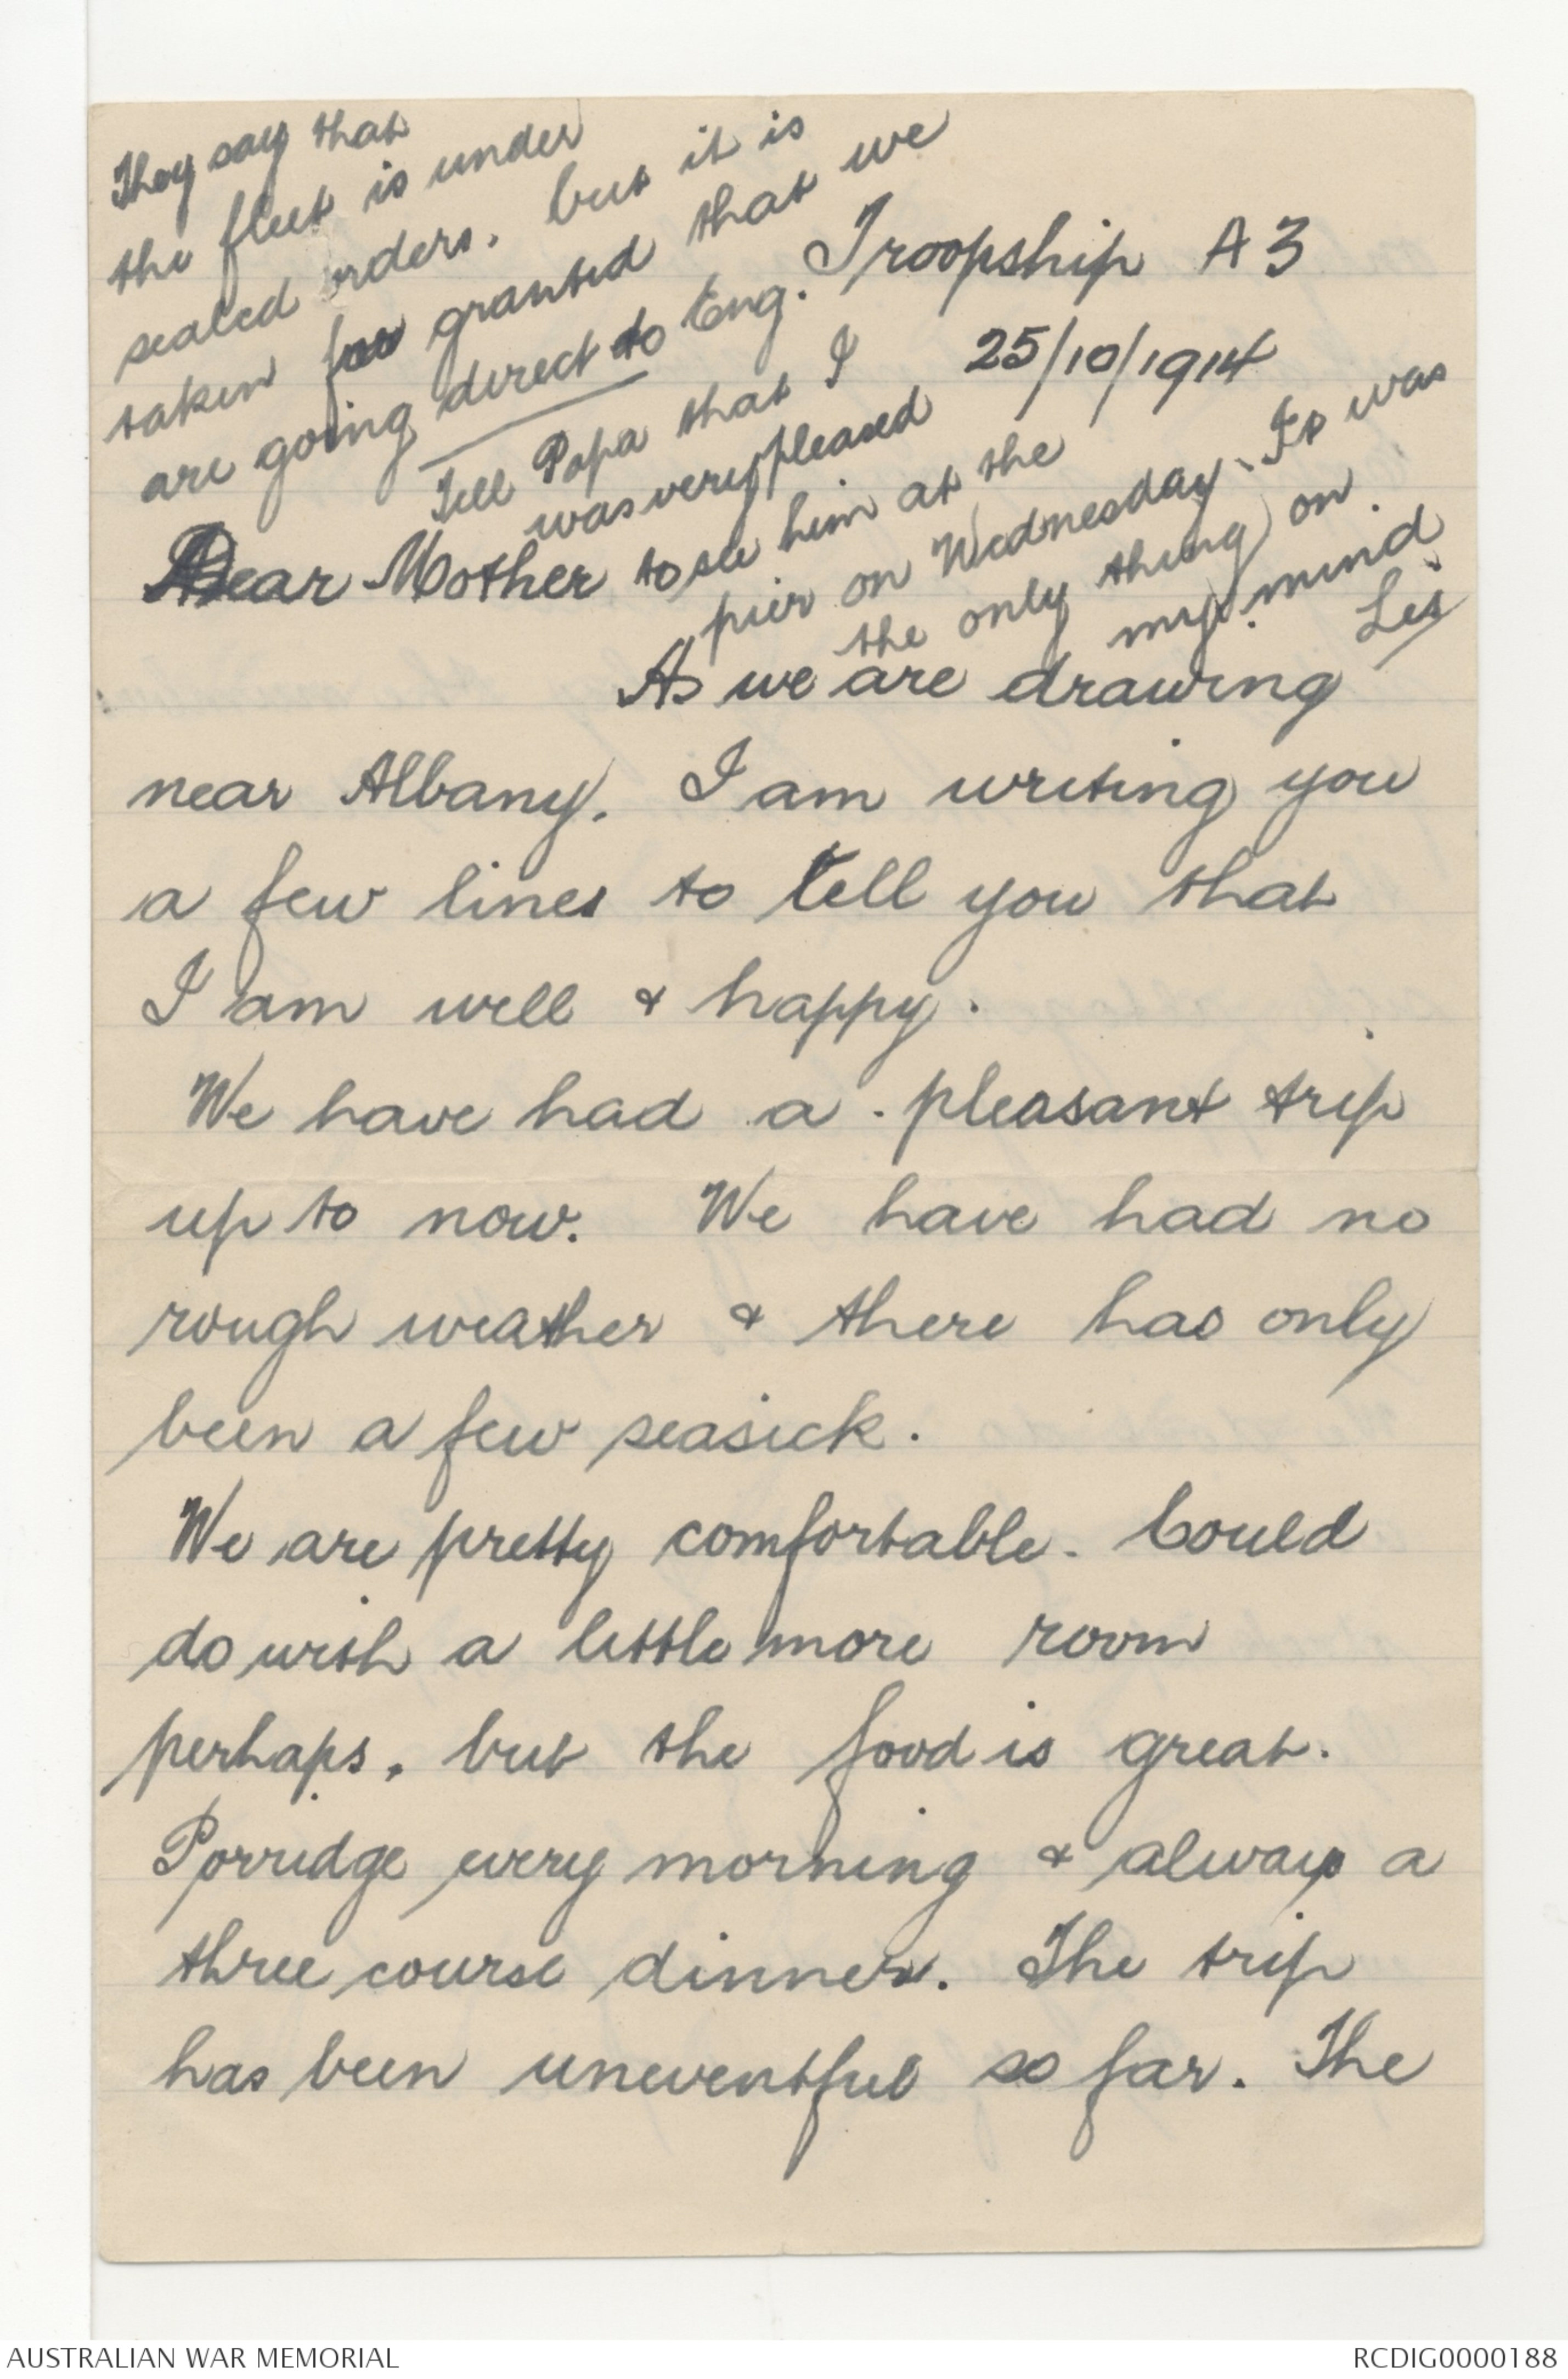 They say that
the fleet is under
sealed orders, but it is
taken for granted that we
are going direct to Eng.
Tell Papa that I
was very pleased
to see him at the
pier on Wednesday. It was
the only thing on
my mind.
Les
Troopship A3
25/10/1914
Dear Mother
As we are drawing
near Albany, I am writing you
a few lines to tell you that
I am well & happy.
We have had a pleasant trip
up to now. We have had no
rough weather & there has only
been a few seasick.
We are pretty comfortable. Could
do with a little more room
perhaps, but the food is great.
Porridge every morning & always a
three course dinner. The trip
has been uneventful so far. The
AUSTRALIAN WAR MEMORIAL
RCDIG0000188